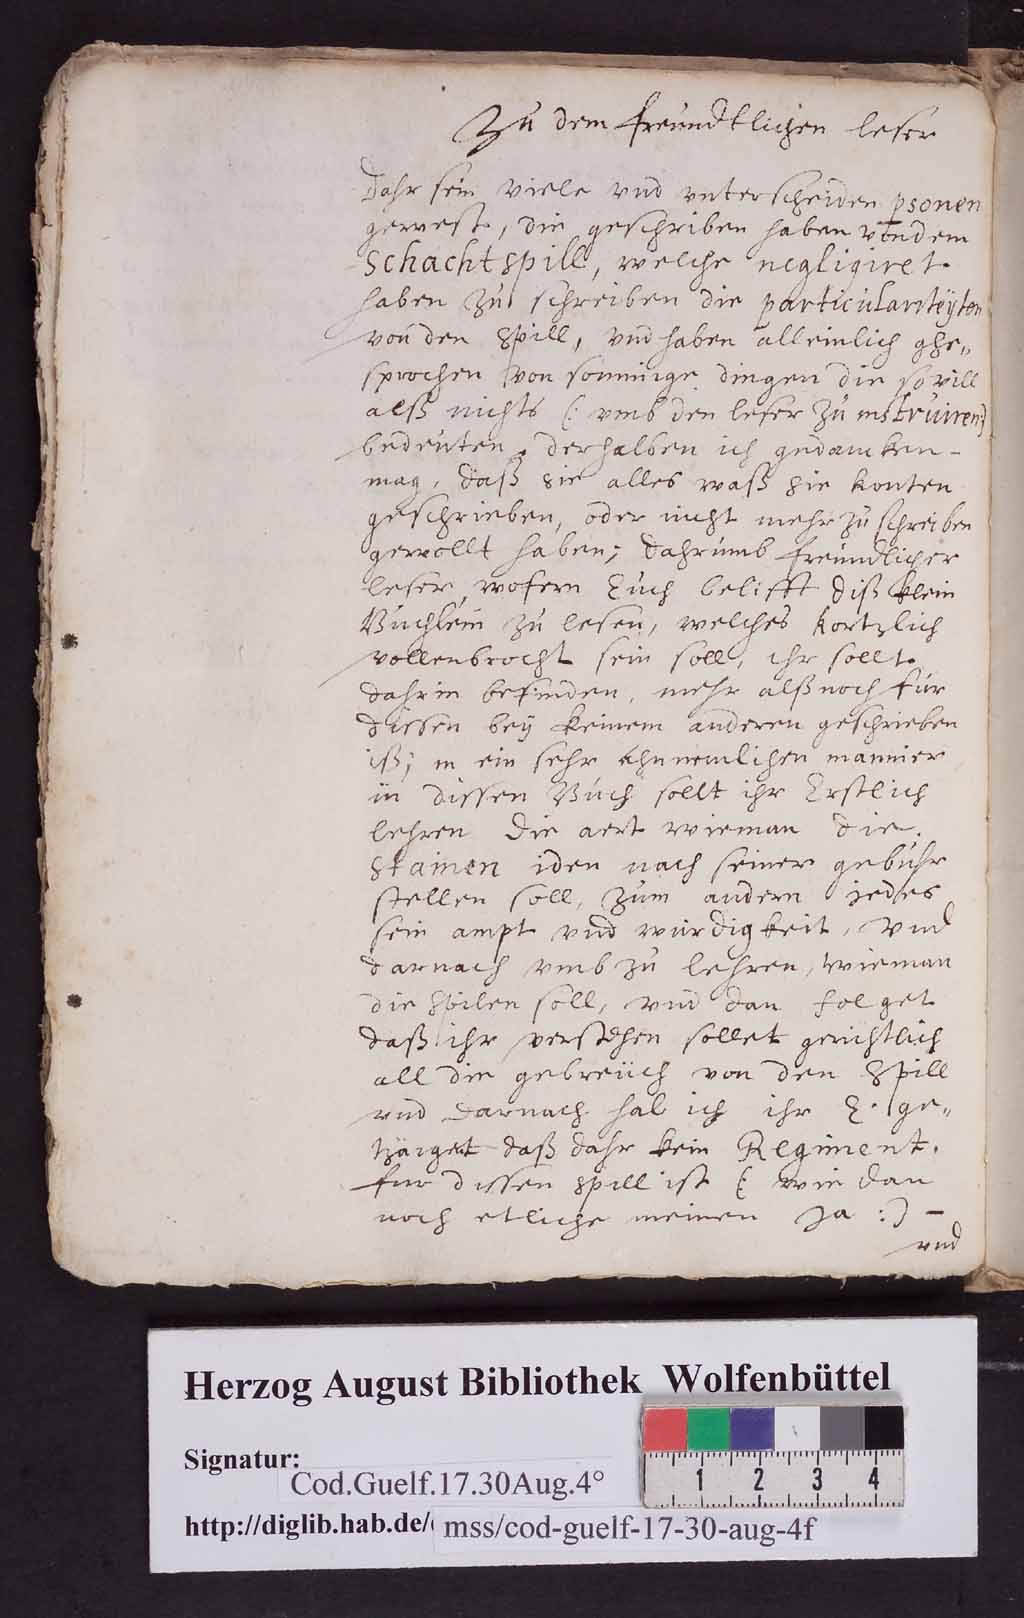 Zu dem freundtlichen leser
Dahr sein viele vnd vnterscheiden psonen
gewest, die geschriben haben von dem
Schachtspill, welche negligiret
haben zu schreiben die particulariteÿten
von den Spill, vnd haben alleinlich ghe„
sprochen von sommige dingen die so vill
alß nichts (: vmb den leser zu instruiren:)
bedeuten. derhalben ich gedancken
mag, daß sie alles waß sie konten
geschrieben, oder nicht mehr zu schreiben
gewollt haben; Dahrumb freundlicher
leser, wofern Euch belifft diß klein
Buchlein zu lesen, welches kortzlich
vollenbrocht sein soll, ihr sollt
dahrin befinden, mehr alß noch für
diessen beÿ keinem anderen geschrieben
iß; in ein sehr ahnnemlichen mannier
in dissen Buch sollt ihr Erstlich
lehren die aert wieman die
Stainen iden nach seiner gebuhr
stellen soll, zum andern jedes
sein ampt vnd würdigkeit, vnd
darnach vmb zu lehren, wieman
die Spilen soll, vnd dan folget
daß ihr verstehen sollet gerichtlich
all die gebreüch von den Spill
vnd darnach hab ich ihr E. ge„
tzaiget daß dahr kein Regiment
fur dissen spill ist (: wie dan
noch etliche meinen Ja :) –
vnd
Herzog August Bibliothek Wolfenbüttel
Signatur:
Cod.Guelf.17.30Aug.4°
http://diglib.hab.de/ mss/cod-guelf-17-30-aug-4f
1 2 3 4